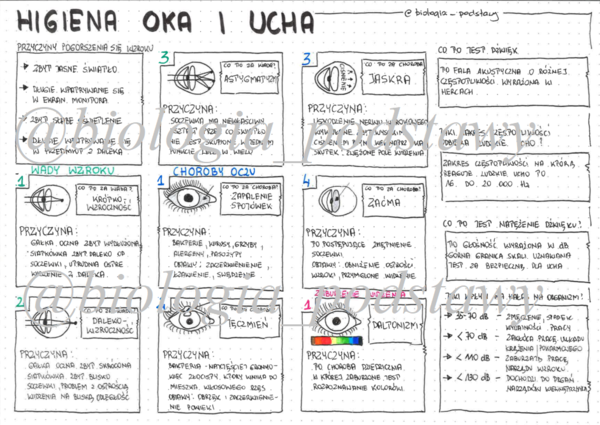 HIGIENA OKA I UCHA
@biologia_podstawy
PRZYCZYNY POGORSZENIA SIĘ WZROKU
→ ZBYT JASNE ŚWIATŁO
→ DŁUGIE WPATRYWANIE SIĘ
W EKRAN MONITORA
→ ZBYT SŁABE OŚWIETLENIE
→ DŁUGIE WPATRYWANIE SIĘ
W PRZEDMIOT Z DALEKA
3
CO TO ZA WADA?
ASTYGMATYZM
PRZYCZYNA:
SOCZEWKA MA NIEWŁAŚCIWY
KSZTAŁT PRZEZ CO ŚWIATŁO
NIE JEST SKUPIONE W JEDNYM
PUNKCIE LECZ W WIELU
3
CIŚNIENIE
CO TO ZA CHOROBA?
JASKRA
PRZYCZYNA:
USZKODZENIE NERWU WZROKOWEGO
WYWOŁANE
SKUTEK: ZWĘŻONE POLE WIDZENIA
CO TO JEST DŹWIĘK
TO FALA AKUSTYCZNA O RÓŻNEJ
CZĘSTOTLIWOŚCI WYRAŻONA W
HERCACH
JAKI ZAKRES CZĘSTOTLIWOŚCI
ODBIERA LUDZKIE UCHO?
ZAKRES CZĘSTOTLIWOŚCI NA KTÓRĄ
REAGUJE LUDZKIE UCHO TO
16 DO 20 000 Hz
WADY WZROKU
1
CO TO ZA WADA?
KRÓTKO-
WZROCZNOŚĆ
PRZYCZYNA:
GAŁKA OCZNA ZBYT WYDŁUŻONA
SIATKÓWKA ZBYT DALEKO OD
SOCZEWKI, UTRUDNIA OSTRE
WIDZENIE Z DALEKA
CHOROBY OCZU
1
CO TO ZA CHOROBA?
ZAPALENIE
SPOJÓWEK
PRZYCZYNA:
BAKTERIE, WIRUSY, GRZYBY,
ALERGENY, PASOŻYTY
OBJAWY: ZACZERWIENIENIE,
ŁZAWIENIE, SWĘDZENIE
4
CO TO ZA CHOROBA?
ZAĆMA
PRZYCZYNA:
TO POSTĘPUJĄCE ZMĘTNIENIE
SOCZEWKI
OBJAWY: OBNIŻENIE OSTROŚCI
WZROKU, PRZYMGLONE WIDZENIE
CO TO JEST NATĘŻENIE DŹWIĘKU?
TO GŁOŚNOŚĆ WYRAŻONA W dB
GÓRNA GRANICA SKALI UZNAWANA
JEST ZA BEZPIECZNĄ DLA UCHA
2
CO TO ZA WADA?
DALEKO-
WZROCZNOŚĆ
PRZYCZYNA:
GAŁKA OCZNA ZBYT SKRÓCONA
SIATKÓWKA ZBYT BLISKO
SOCZEWKI, PROBLEM Z OSTROŚCIĄ
WIDZENIA NA BLISKĄ ODLEGŁOŚĆ
2
CO TO ZA CHOROBA?
JĘCZMIEŃ
PRZYCZYNA:
BAKTERIA - NAJCZĘŚCIEJ GRONKO-
WIEC ZŁOCISTY, KTÓRY WNIKA DO
MIESZKA WŁOSOWEGO RZĘS
OBJAWY: OBRZĘK I ZACZERWIENIE-
NIE POWIEKI
ZABURZENIE WIDZENIA
1
DALTONIZM
PRZYCZYNA:
TO CHOROBA DZIEDZICZNA
W KTÓREJ ZABURZONE JEST
ROZPOZNAWANIE KOLORÓW
JAKI WPŁYW MA HAŁAS NA ORGANIZM?
→ 35-70 dB - ZMĘCZENIE, SPADEK
WYDAJNOŚCI PRACY
→ < 70 dB - ZAKŁÓCA PRACĘ UKŁADU
KRĄŻENIA I POKARMOWEGO
→ < 110 dB - ZABURZA PRACĘ
NARZĄDU WZROKU
→ < 130 dB - DOCHODZI DO DRGAŃ
NARZĄDÓW WEWNĘTRZNYCH
@biologia_podstawy
@biologia_podstawy